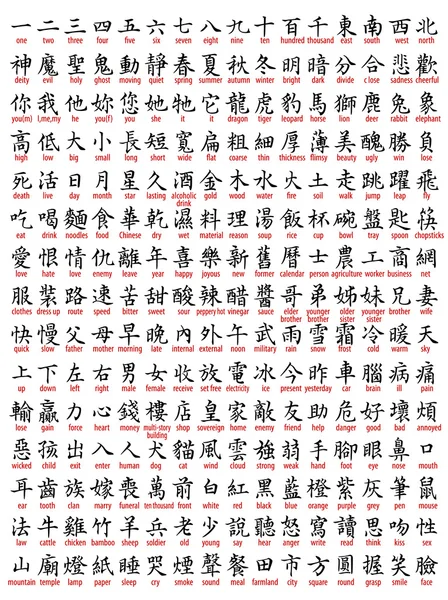 一 二 三 四 五 六 七 八 九 十 百 千 東 南 西 北
one two three four five six seven eight nine ten hundred thousand east south west north
神 魔 聖 鬼 動 靜 春 夏 秋 冬 明 暗 分 合 悲 歡
deity evil holy ghost moving quiet spring summer autumn winter bright dark divide close sadness cheerful
你 我 他 妳 您 她 牠 它 龍 虎 豹 馬 獅 鹿 兔 象
you(m) I,me,my he you(f) you she it it dragon tiger leopard horse lion deer rabbit elephant
高 低 大 小 長 短 寬 扁 粗 細 厚 薄 美 醜 勝 負
high low big small long short wide flat coarse thin thickness flimsy beauty ugly win lose
死 活 日 月 星 久 酒 金 木 水 火 土 走 跳 躍 飛
death live day month star lasting alcoholic drink gold wood water fire soil walk jump leap fly
吃 喝 麵 食 華 乾 濕 料 理 湯 飯 杯 碗 盤 匙 筷
eat drink noodles food Chinese dry wet material reason soup rice cup bowl tray spoon chopsticks
愛 恨 情 仇 離 年 喜 樂 新 舊 曆 士 農 工 商 網
love hate love enemy leave year happy joyous new former calendar person agriculture worker business net
服 裝 路 速 苦 甜 酸 辣 醋 醬 哥 弟 姊 妹 兄 妻
clothes dress up route speed bitter sweet sour peppery hot vinegar sauce elder brother younger brother older sister younger sister brother wife
快 慢 父 母 早 晚 內 外 午 武 雨 雪 霜 冷 暖 天
quick slow father mother morning late internal external noon military rain snow frost cold warm sky
上 下 左 右 男 女 收 放 電 冰 今 昨 車 腦 病 痛
up down left right male female receive set free electricity ice present yesterday car brain ill pain
輸 贏 力 心 錢 樓 店 皇 家 敵 友 助 危 好 壞 煩
lose gain force heart money multi-story building shop sovereign home enemy friend help danger good bad annoyed
惡 孩 出 入 人 犬 貓 風 雲 強 弱 手 腳 眼 鼻 口
wicked child exit enter human dog cat wind cloud strong weak hand foot eye nose mouth
耳 齒 族 嫁 喪 萬 前 白 紅 黑 藍 橙 紫 灰 筆 鼠
ear tooth clan marry funeral ten thousand front white red black blue orange purple grey pen mouse
法 牛 雞 竹 羊 兵 老 少 說 聽 怒 寫 讀 思 吻 性
law cattle chicken bamboo sheep soldier old young say hear anger write read think kiss sex
山 廟 燈 紙 睡 哭 煙 聲 餐 田 市 方 圓 握 笑 臉
mountain temple lamp paper sleep cry smoke sound meal farmland city square round grasp smile face